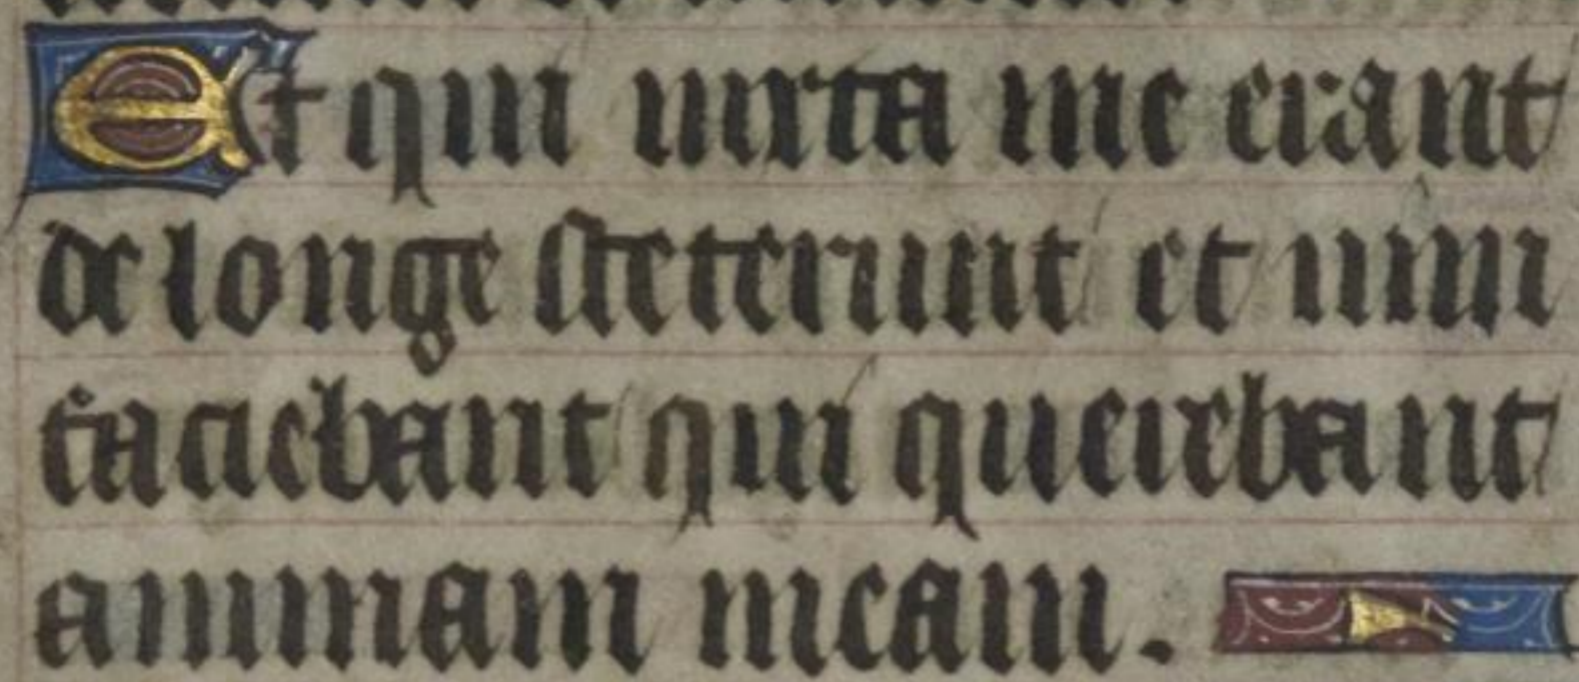 Et qui iuxta me erant
de longe steterunt et uim
faciebant qui querebant
animam meam.